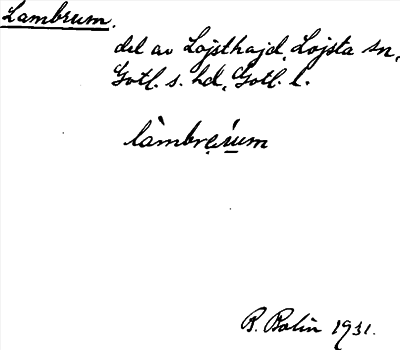 Lambrum.
del av Lojsthajd, Lojsta sn,
Gotl. s. hd, Gotl. l.
làmbręíum
B. Bolin 1931.